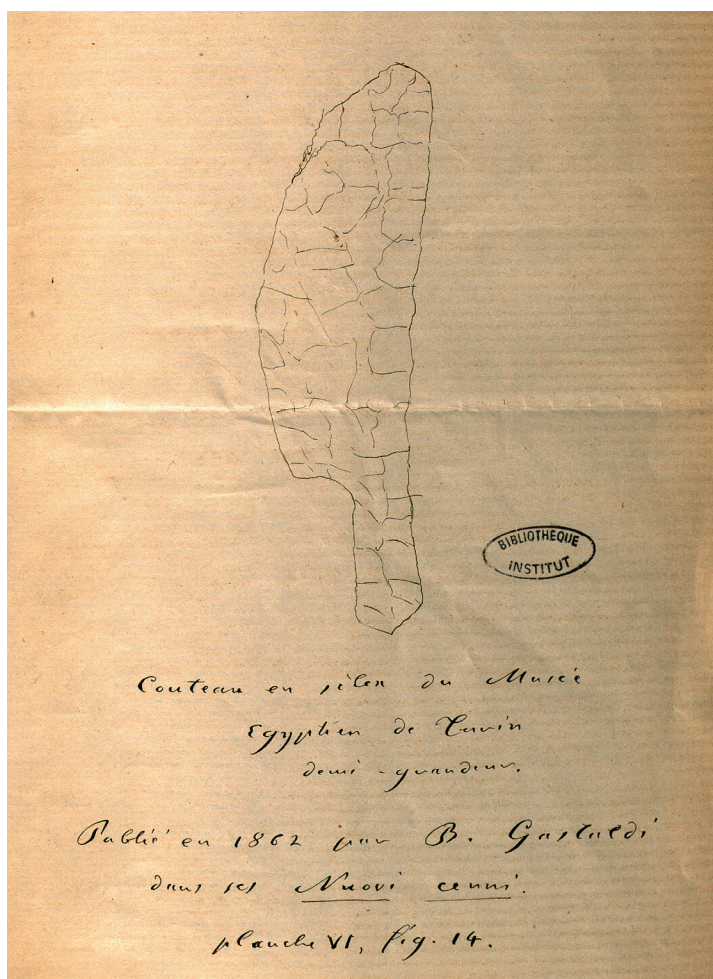 BIBLIOTHEQUE
INSTITUT
Couteau en silex du Musée
Egyptien de Turin
demi-grandeur.
Publié en 1862 par B. Gastaldi
dans ses Nuovi cenni.
planche VI, fig. 14.